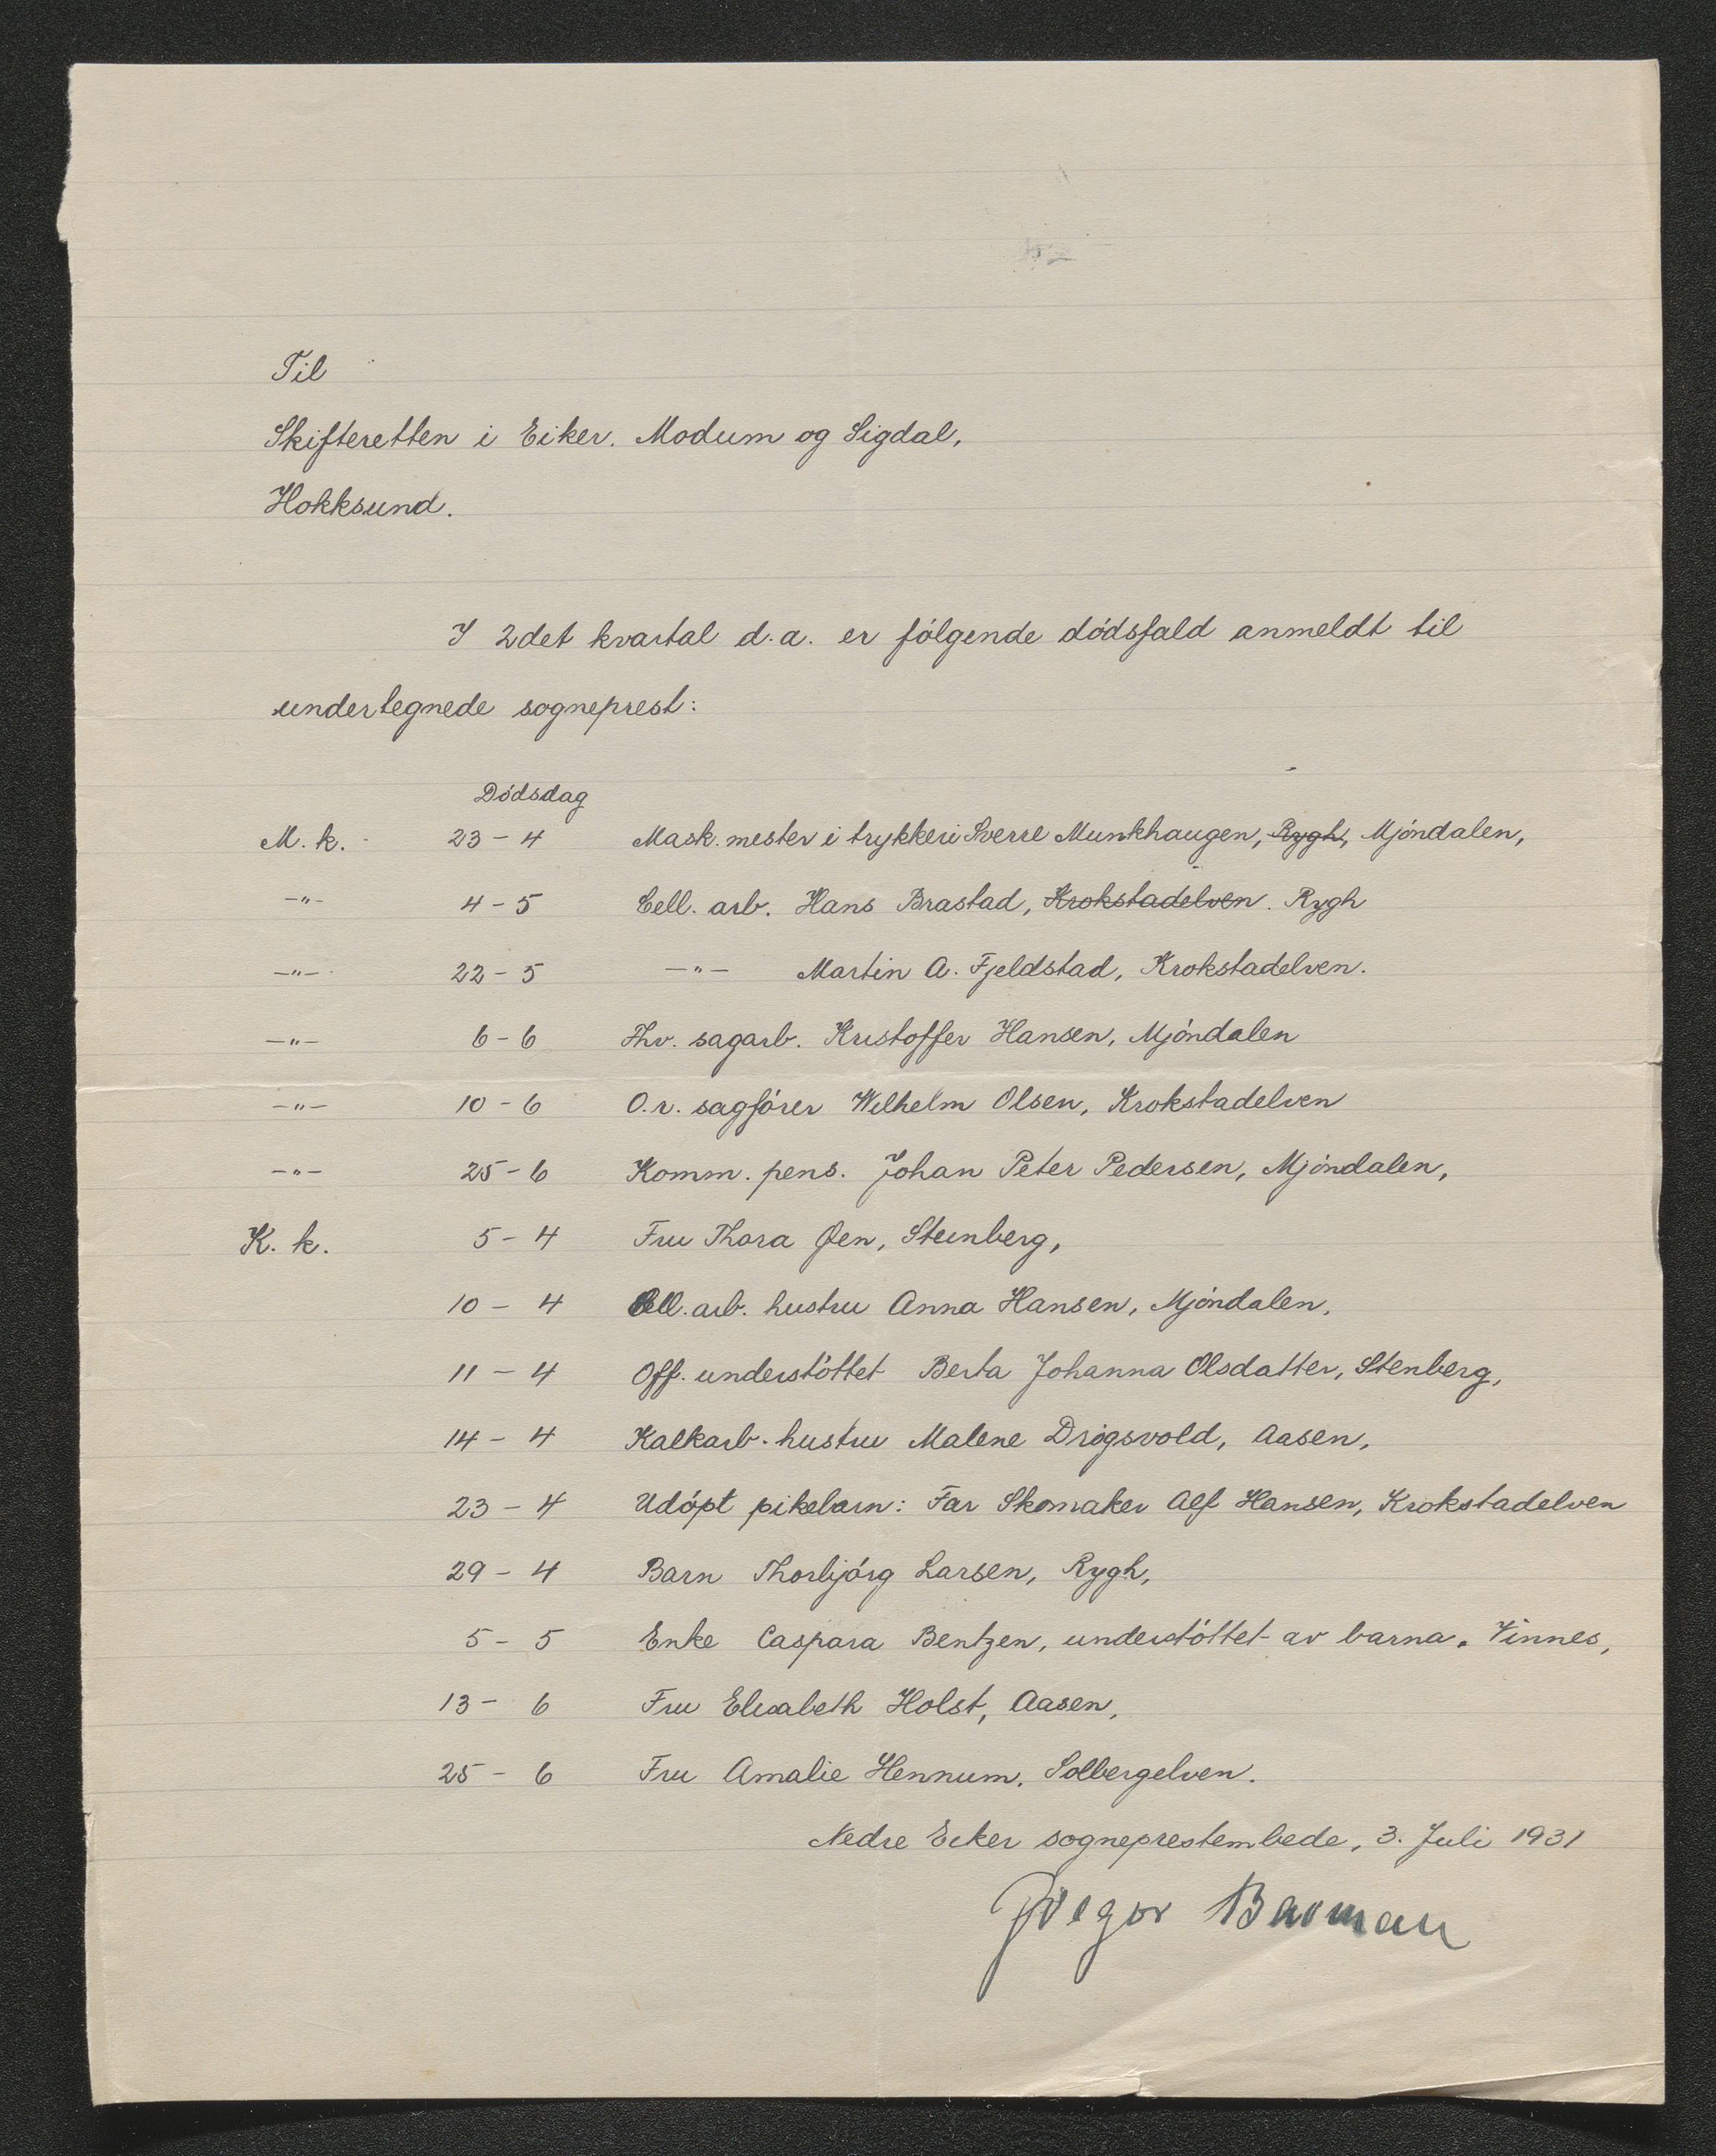 Til
Skifteretten i Eiker, Modum og Sigdal,
Hokksund.
I 2det kvartal d.a. er følgende dödsfald anmeldt til
undertegnede sogneprest:
Dödsdag
M. k. 23 - 4 Mask. mester i trykkeri Sverre Munkhaugen, Rygh, Mjöndalen,
-"- 4 - 5 Cell. arb. Hans Brastad, Krokstadelven. Rygh
-"- 22 - 5 -"- Martin A. Fjeldstad, Krokstadelven.
-"- 6 - 6 Fhv. sagarb. Kristoffer Hansen, Mjöndalen
-"- 10 - 6 O.r. sagförer Wilhelm Olsen, Krokstadelven
-"- 25 - 6 Komm. pens. Johan Peter Pedersen, Mjöndalen,
K. k. 5 - 4 Fru Thora Øen, Steinberg,
10 - 4 Cell. arb. hustru Anna Hansen, Mjöndalen,
11 - 4 Off. understöttet Berta Johanna Olsdatter, Stenberg,
14 - 4 Kalkarb. hustru Malene Drögsvold, Aasen,
23 - 4 Udöpt pikebarn: Far Skomaker Alf Hansen, Krokstadelven
29 - 4 Barn Thorbjörg Larsen, Rygh,
5 - 5 Enke Caspara Bentzen, understöttet av barna. Vinnes,
13 - 6 Fru Elisabeth Holst, Aasen,
25 - 6 Fru Amalie Hennum, Solbergelven.
Nedre Eiker sogneprestembede, 3. Juli 1931